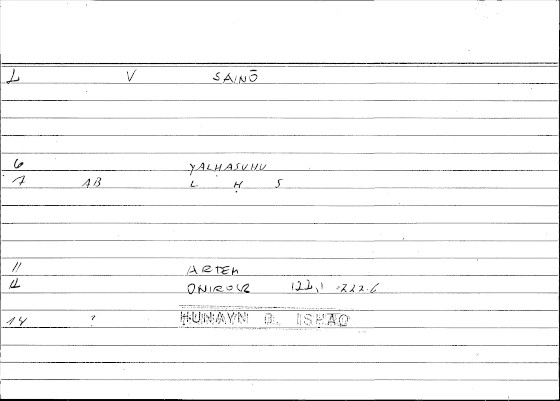 L V SAINŌ
6 YALHASUHU
7 AB L Ḥ S
11 ARTEM
12 ONIROCR 122,1 -222.6
14 ? HUNAYN B. ISHAQ